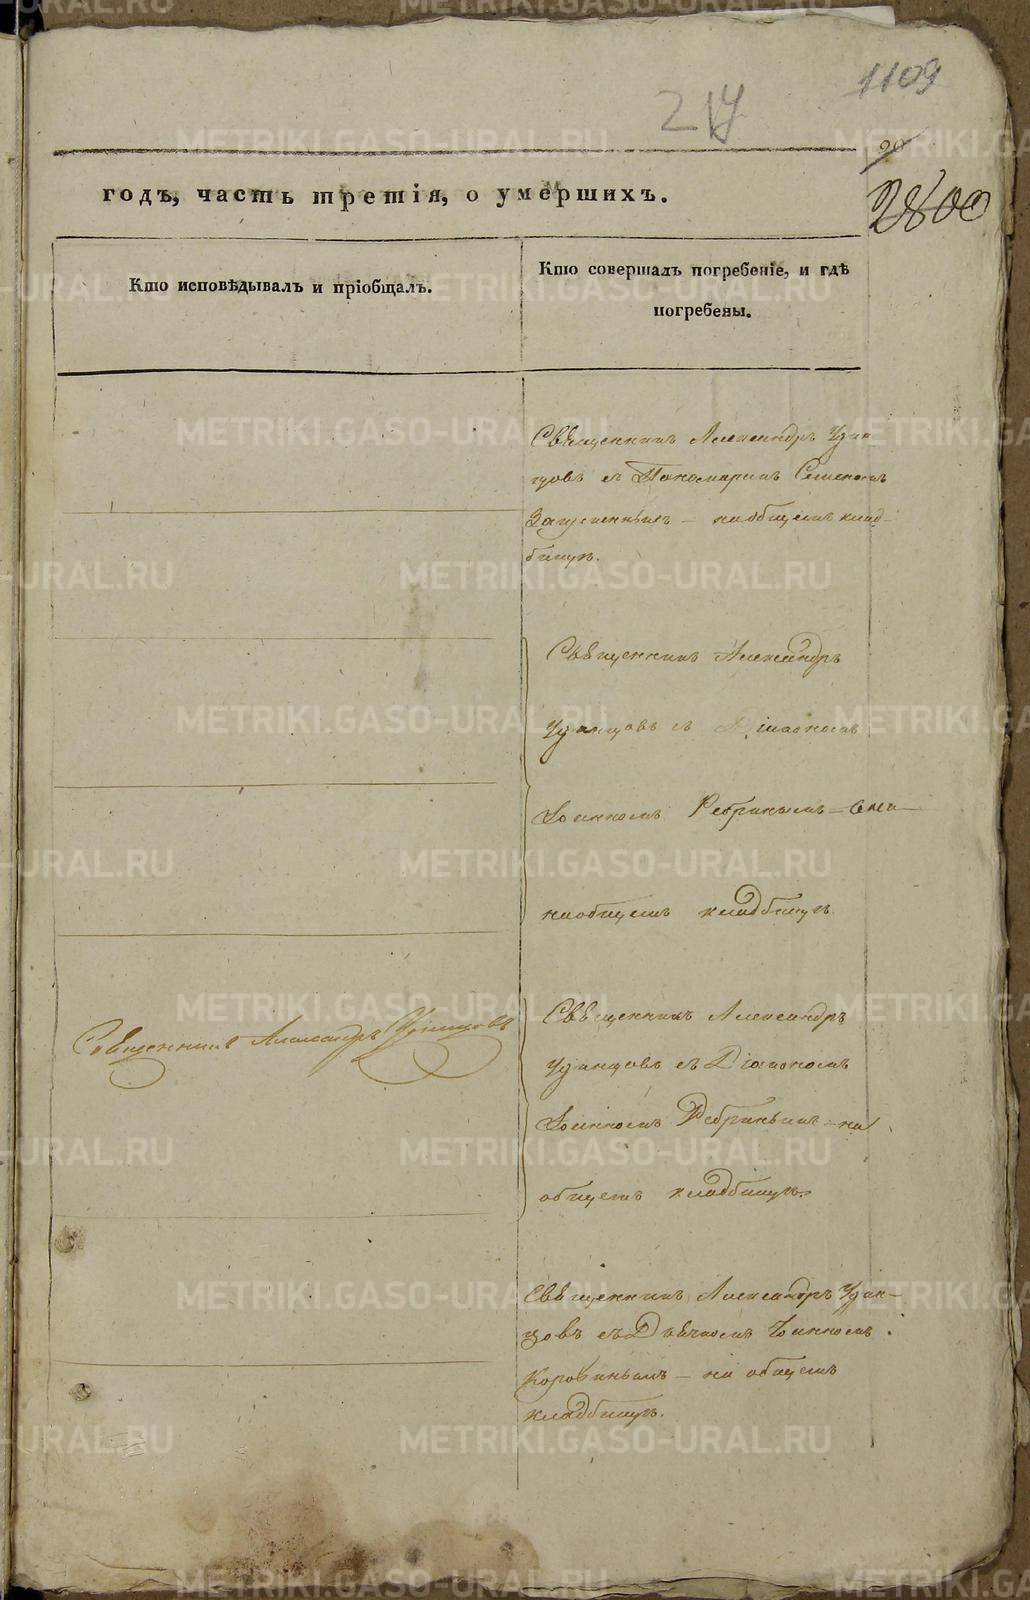 1109
217
20
2800
годъ, часть третія, о умершихъ.
Кто исповѣдывалъ и пріобщалъ.
Кто совершалъ погребеніе, и гдѣ
погребены.
Священникъ Александръ Удин-
цовъ съ Пономаремъ Семеномъ
на общемъ клад-
бищѣ.
Священникъ Александръ
Удинцовъ съ Діакономъ
Іоанномъ Ребринымъ
на общемъ кладбищѣ
Священникъ Александръ Удинцовъ
Священникъ Александръ
Удинцовъ съ Діакономъ
Іоанномъ Ребринымъ – на
общемъ кладбищѣ.
Священникъ Александръ Удин-
цовъ съ Дьячкомъ Іоанномъ
Коровинымъ – на общемъ
кладбищѣ.
METRIKI.GASO-URAL.RU